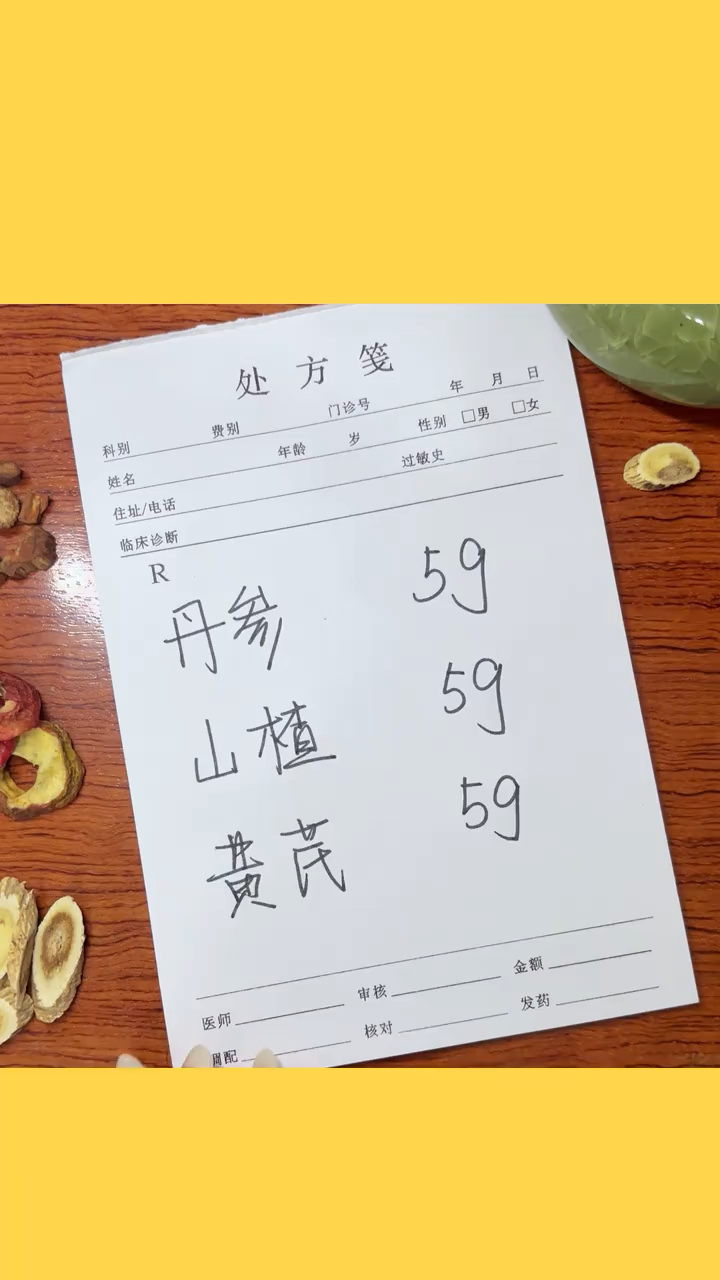 处方笺
科别 费别 门诊号 年 月 日
姓名 年龄 岁 性别 □男 □女
住址/电话 过敏史
临床诊断
R
丹参 5g
山楂 5g
黄芪 5g
医师 审核 金额
调配 核对 发药